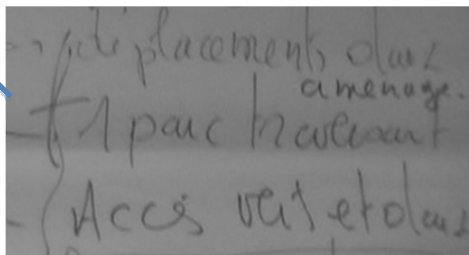 déplacements dans
aménage.
1 parc traversant
- Accès vers et dans